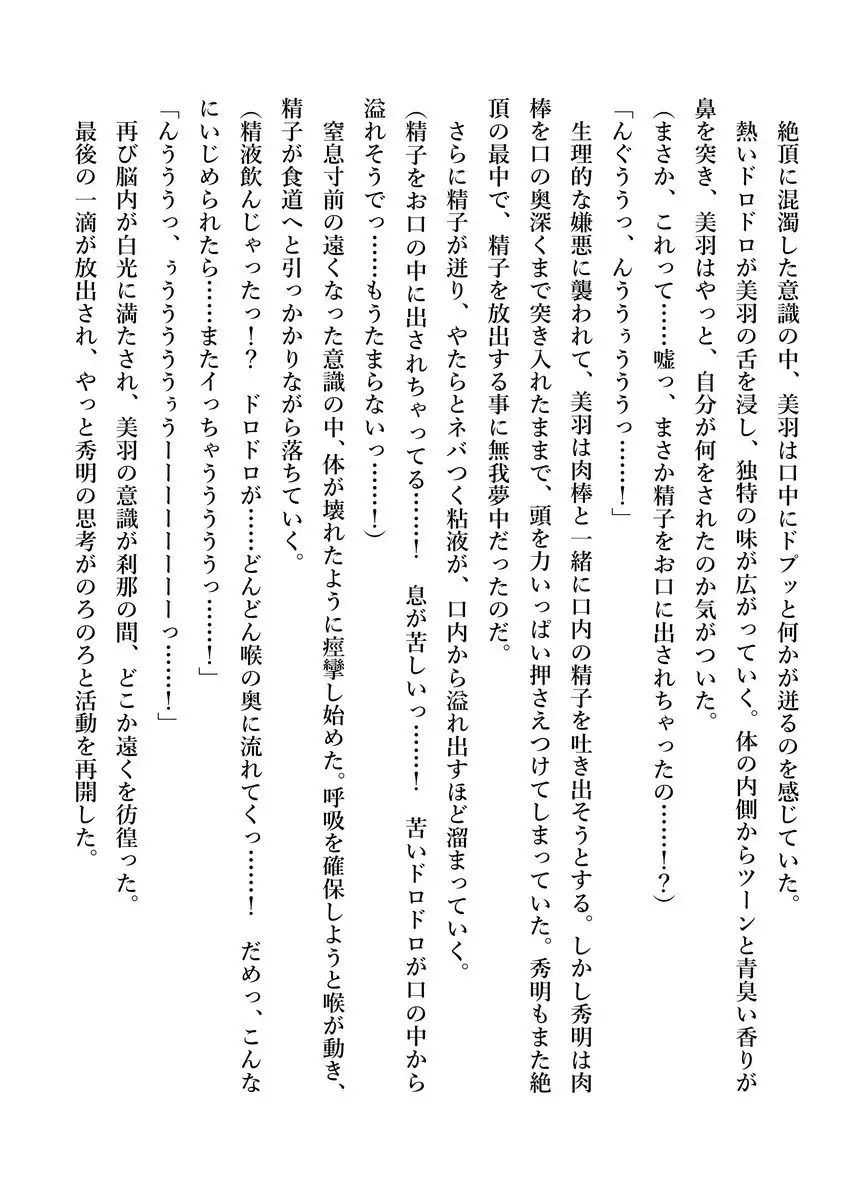 絶頂に混濁した意識の中、美羽は口中にドプッと何かが迸るのを感じていた。
熱いドロドロが美羽の舌を浸し、独特の味が広がっていく。体の内側からツーンと青臭い香りが
鼻を突き、美羽はやっと、自分が何をされたのか気がついた。
（まさか、これって……嘘っ、まさか精子をお口に出されちゃったの……！？）
「んぐううっ、んううぅうううっ……！」
生理的な嫌悪に襲われて、美羽は肉棒と一緒に口内の精子を吐き出そうとする。しかし秀明は肉
棒を口の奥深くまで突き入れたままで、頭を力いっぱい押さえつけてしまっていた。秀明もまた絶
頂の最中で、精子を放出する事に無我夢中だったのだ。
さらに精子が迸り、やたらとネバつく粘液が、口内から溢れ出すほど溜まっていく。
（精子をお口の中に出されちゃってる……！　息が苦しいっ……！　苦いドロドロが口の中から
溢れそうでっ……もうたまらないっ……！）
窒息寸前の遠くなった意識の中、体が壊れたように痙攣し始めた。呼吸を確保しようと喉が動き、
精子が食道へと引っかかりながら落ちていく。
（精液飲んじゃったっ！？　ドロドロが……どんどん喉の奥に流れてくっ……！　だめっ、こんな
にいじめられたら……またイっちゃうううううっ……！」
「んうううっ、ぅうううううぅうーーーーーーーっ……！」
再び脳内が白光に満たされ、美羽の意識が刹那の間、どこか遠くを彷徨った。
最後の一滴が放出され、やっと秀明の思考がのろのろと活動を再開した。